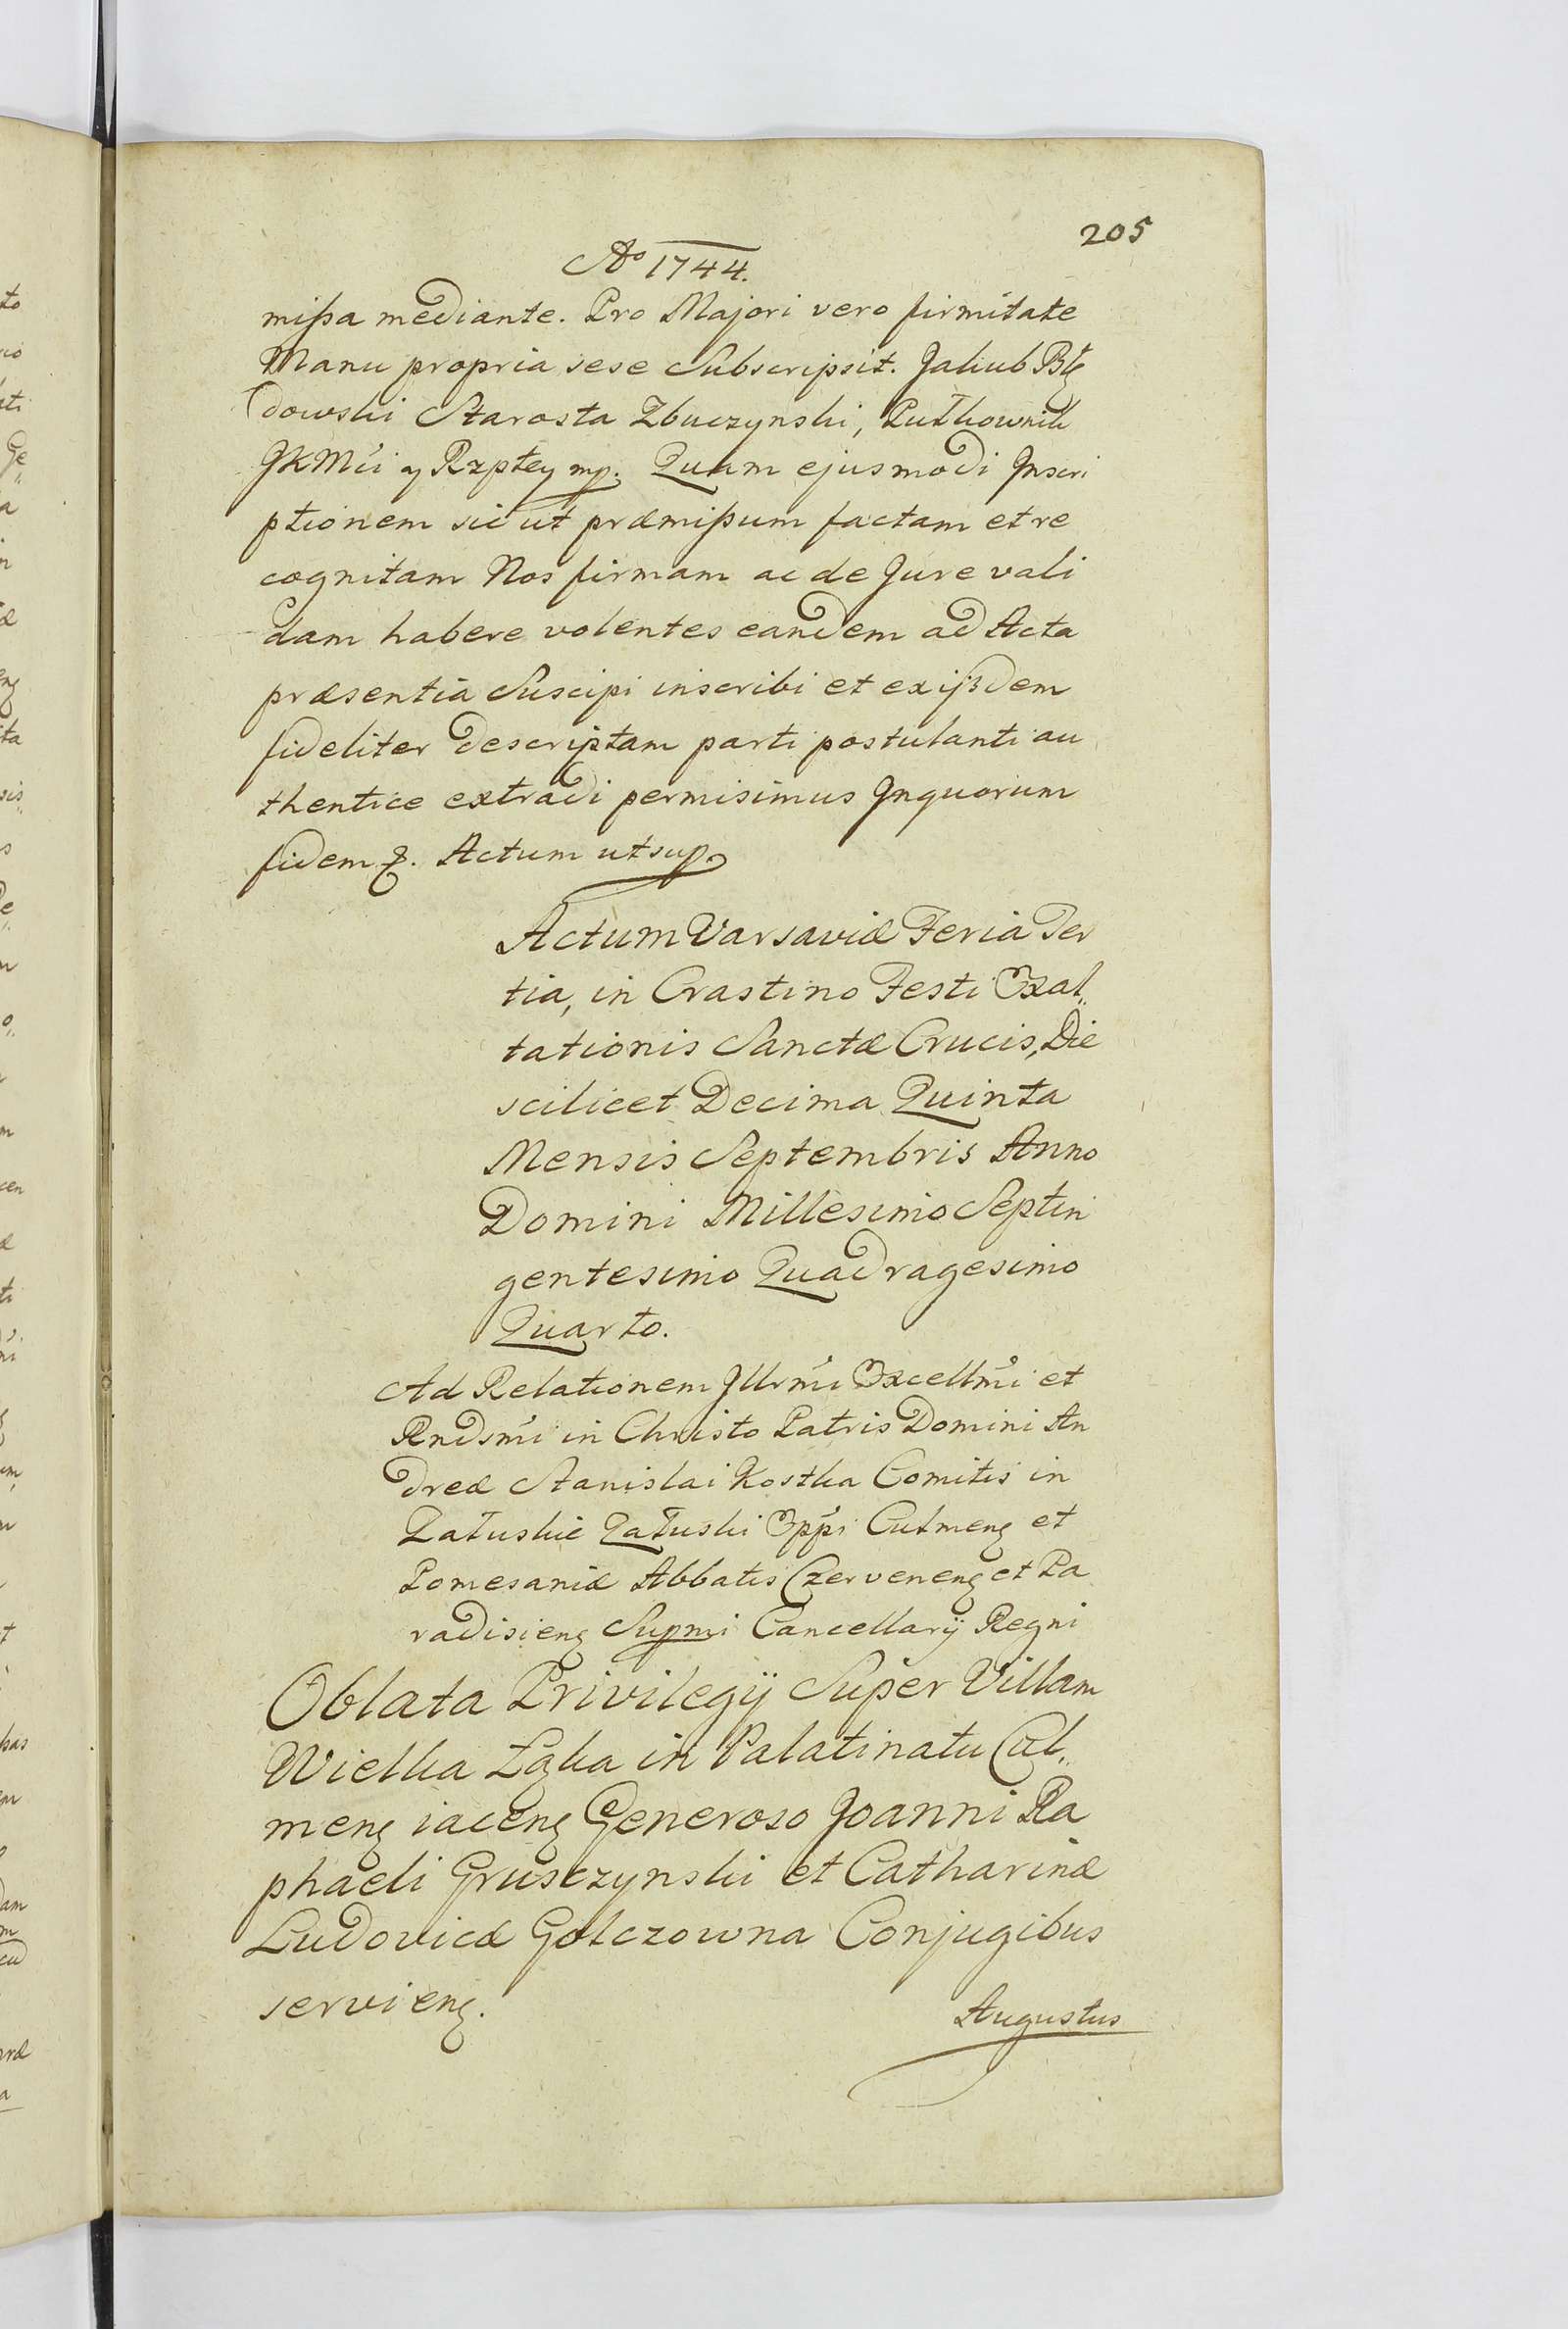 205
Ao 1744.
mißa mediante. Pro Majori vero firmitate
Manu propria sese Subscripsit. Jakub Błę
dowski Starosta Zbuczynski, Pułkownik
JKMći y Rzptey mp. Quam ejusmodi Inscri
ptionem sic ut præmißum factam et re
cognitam Nos firmam ac de Jure vali
dam habere volentes eandem ad Acta
præsentia Suscipi inscribi et ex ijsdem
fideliter descriptam parti postulanti au
thentice extradi permisimus Inquorum
fidem &. Actum ut sup.
Actum Varsaviæ Feria Ter
tia, in Crastino Festi Exal„
tationis Sanctæ Crucis, Die
scilicet Decima Quinta
Mensis Septembris Anno
Domini Millesimo Septin
gentesimo Quadragesimo
Quarto.
Ad Relationem Jllrmi Excellmi et
Rndsmi in Christo Patris Domini An
dreæ Stanislai Kostka Comitis in
Załuskie Załuski Eppi Culmenς et
Pomesaniæ Abbatis Czervenenς et Pa
radisienς Supmi Cancellarÿ Regni
Oblata Privilegÿ Super Villam
Wielka Łąka in Palatinatu Cul„
menς iacenς Generoso Joanni Ra
phaeli Grusczynski et Catharinæ
Ludovicæ Golczowna Conjugibus
servienς.
Augustus